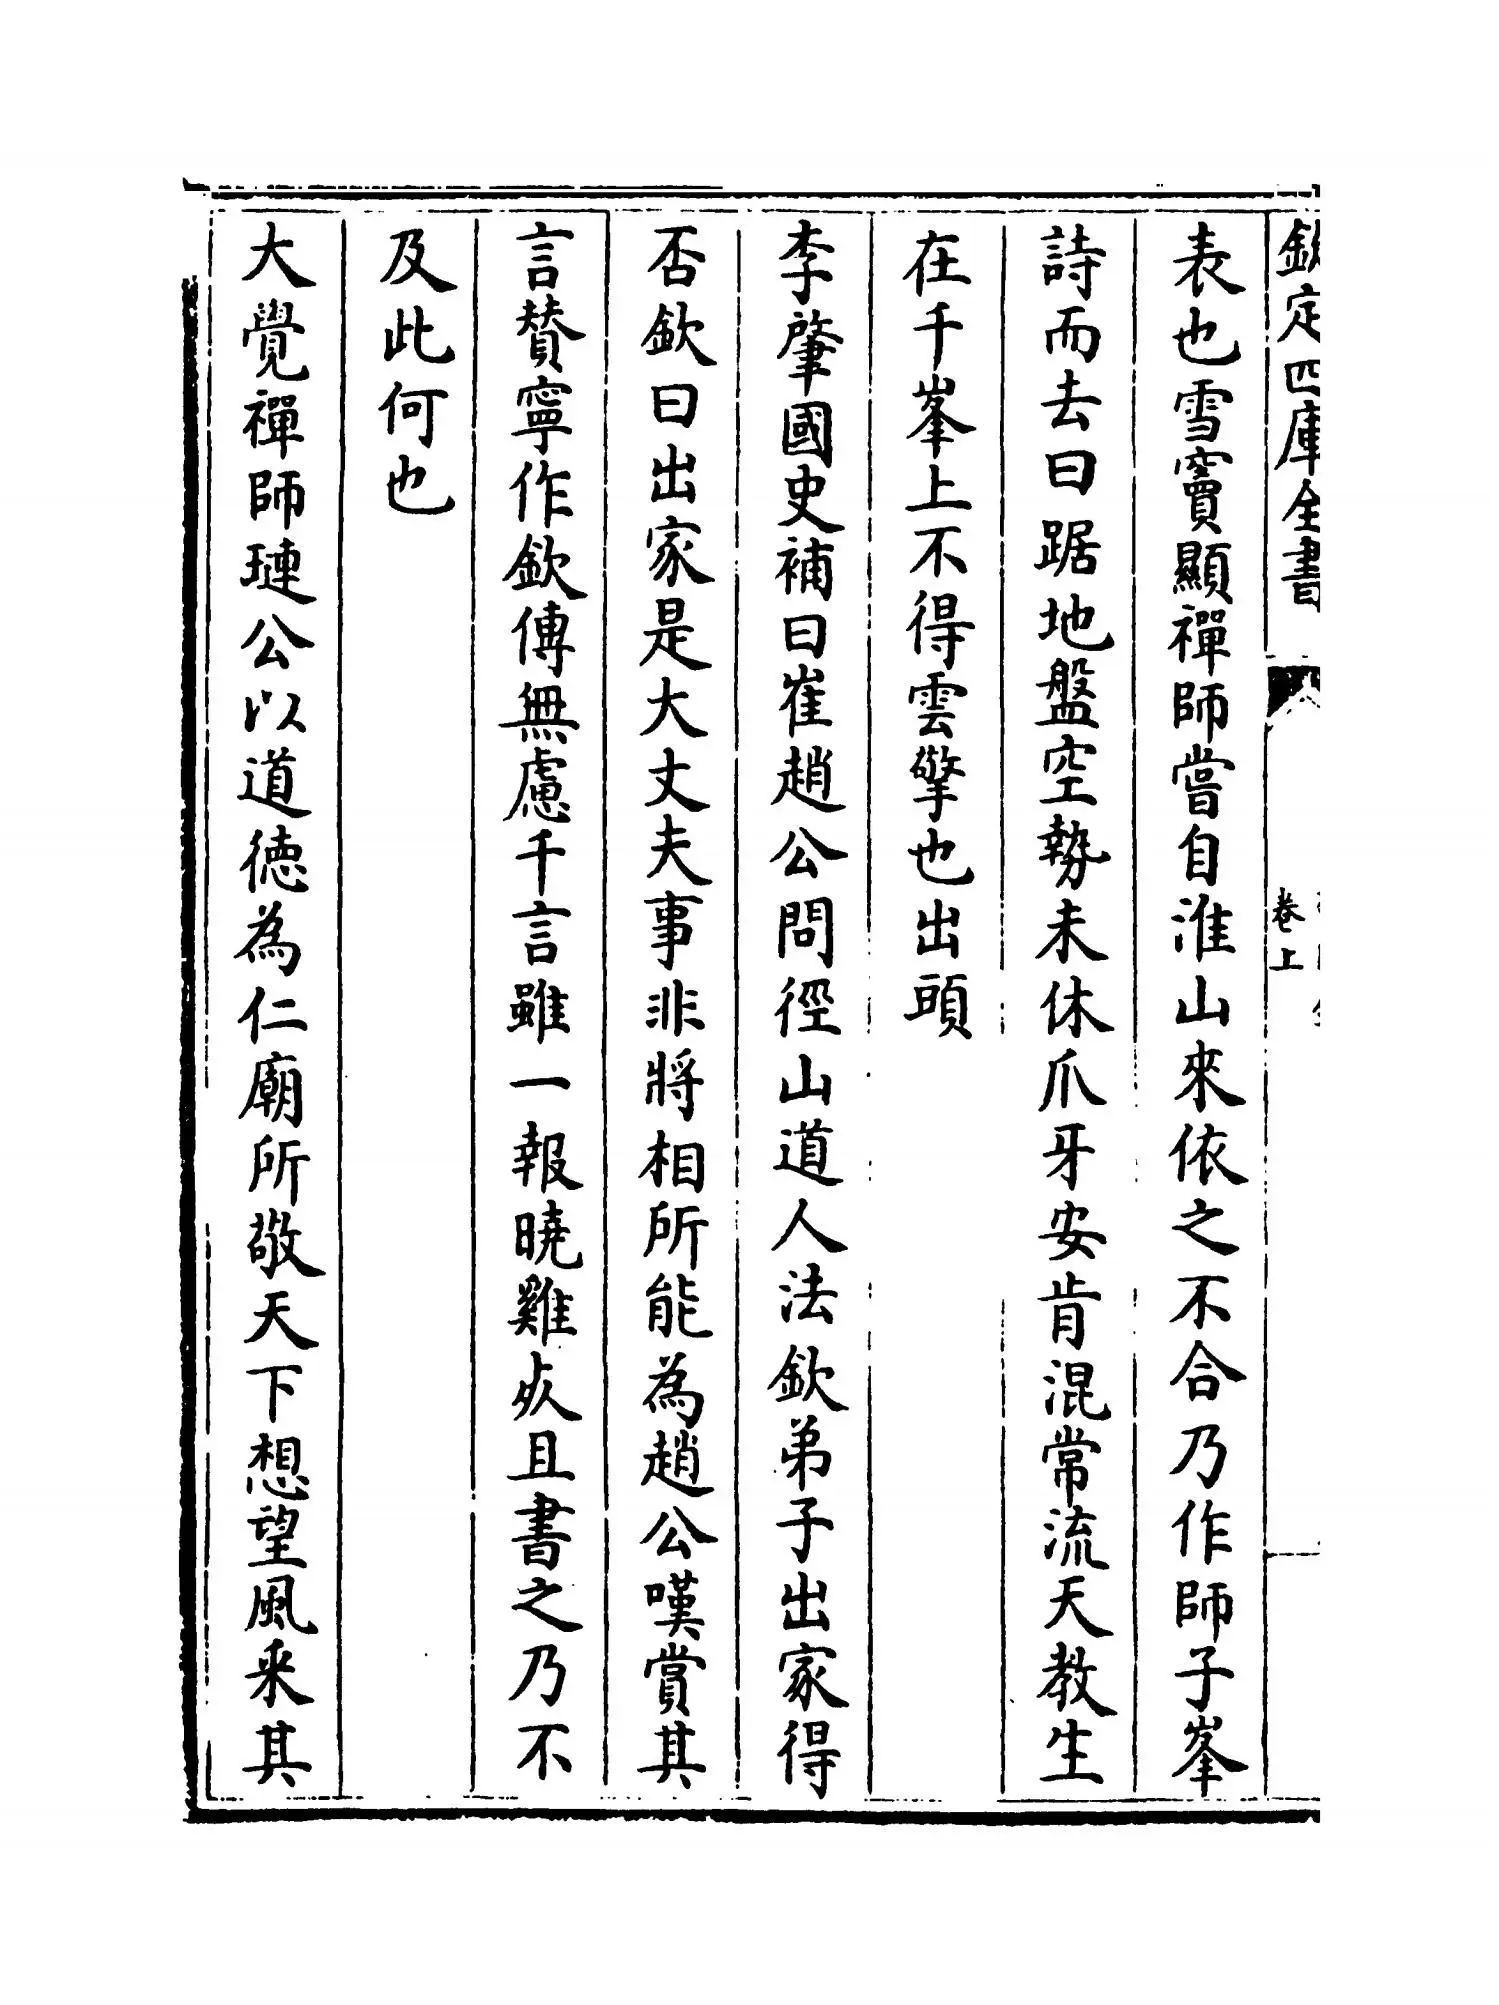 欽定四庫全書
卷上
表也雪竇顯禪師嘗自淮山來依之不合乃作師子峯
詩而去曰踞地盤空勢未休爪牙安肯混常流天教生
在千峯上不得雲擎也出頭
李肇國史補曰崔趙公問徑山道人法欽弟子出家得
否欽曰出家是大丈夫事非將相所能為趙公嘆賞其
言贊寧作欽傳無慮千言雖一報曉雞死且書之乃不
及此何也
大覺禪師璉公以道德為仁廟所敬天下想望風采其